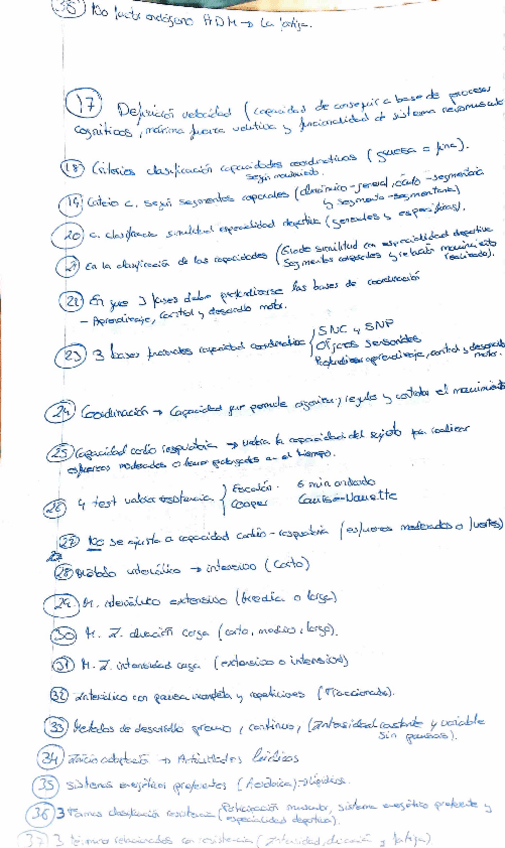 No factor endógeno ADM → La fatiga.
17 Definición velocidad (capacidad de conseguir a base de procesos
cognitivos, máxima fuerza volitiva y funcionalidad d sistema neuromuscular
18 Criterios clasificación capacidades coordinativas (gruesa = fina).
según movimiento.
19 Criterio c. según segmentos corporales (dinámico-general, óculo-segmentaria
y segmento-segmentaria)
20 c. clasificación similitud especialidad deportiva (generales y específicas).
21 En la clasificación de las capacidades (Grado similitud con especialidad deportiva
Segmentos corporales y relación movimiento
realizado).
22 En que 3 fases deben profundizarse las bases de coordinación
- Aprendizaje, control y desarrollo motor.
23 3 bases capacidad coordinativa SNC y SNP
Órganos sensoriales
Profundizar aprendizaje, control y desarrollo
motor.
24 Coordinación → Capacidad que permite organizar, regular y controlar el movimiento
25 Capacidad cardio respiratoria → valora la capacidad del sujeto para realizar
esfuerzos moderados o leves prolongados en el tiempo.
26 4 test valorar resistencia Escalón. 6 min andando
Cooper
27 No se ajusta a capacidad cardio-respiratoria (esfuerzos moderados o fuertes)
28 Método interválico → intensivo (Corto)
29 M. interválico extensivo (Media o larga)
30 M. I. duración carga (corto, medio, largo).
31 M. I. intensidad carga (extensivo o intensivo)
32 Interválico con pausa completa y repeticiones (Fraccionado).
33 Métodos de desarrollo continuo, (Intensidad constante y variable
Sin pausas).
34 Inicio adaptación →
35 Sistemas energéticos preferentes (Aeróbica) → Lipídica.
36 3 Formas clasificación resistencia (Participación muscular, sistema energético preferente y
especialidad deportiva).
37 3 términos relacionados con resistencia (Intensidad, duración y fatiga)